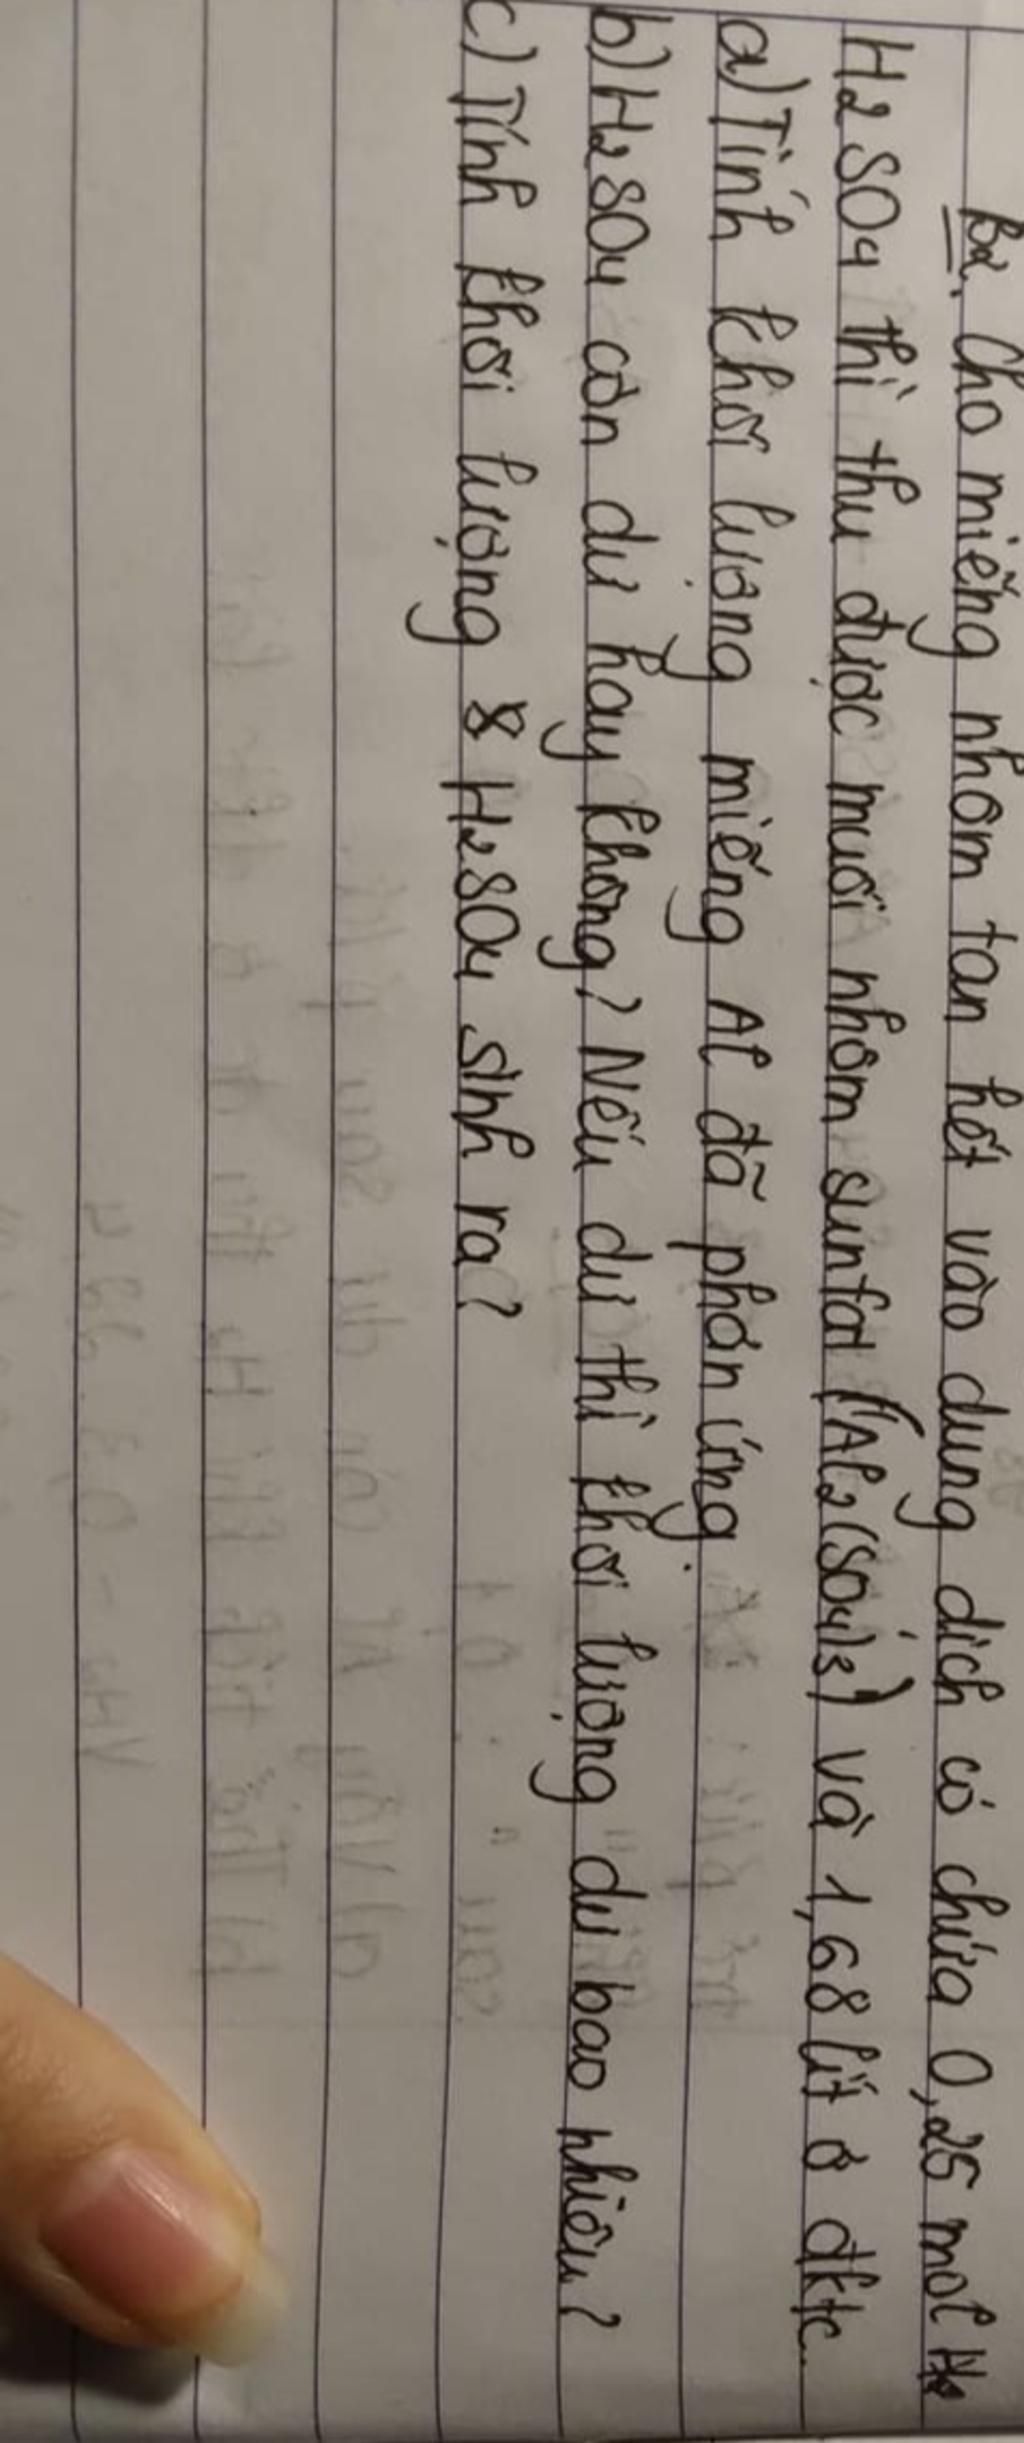 B2. Cho miếng nhôm tan hết vào dung dịch có chứa 0,25 mol
H2SO4 thì thu được muối nhôm sunfat (Al2(SO4)3) và 1,68 lít ở đktc.
a) Tính khối lượng miếng Al đã phản ứng.
b) H2SO4 còn dư hay không? Nếu dư thì khối lượng dư bao nhiêu?
c) Tính khối lượng H2SO4 sinh ra?